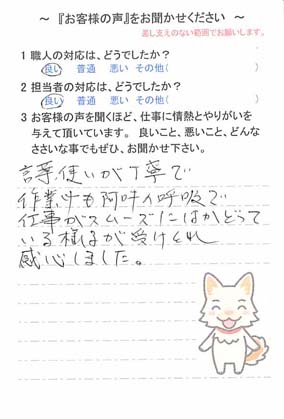 ～ 『お客様の声』をお聞かせください ～
差し支えのない範囲でお願いします。
1 職人の対応は、どうでしたか？
良い 普通 悪い その他( )
2 担当者の対応は、どうでしたか？
良い 普通 悪い その他( )
3 お客様の声を聞くほど、仕事に情熱とやりがいを
与えて頂いています。 良いこと、悪いこと、どんな
ささいな事でもぜひ、お聞かせ下さい。
言葉使いが丁寧で
作業中も阿吽の呼吸で
仕事がスムーズにはかどって
いる様子が受けとれ
感心しました。